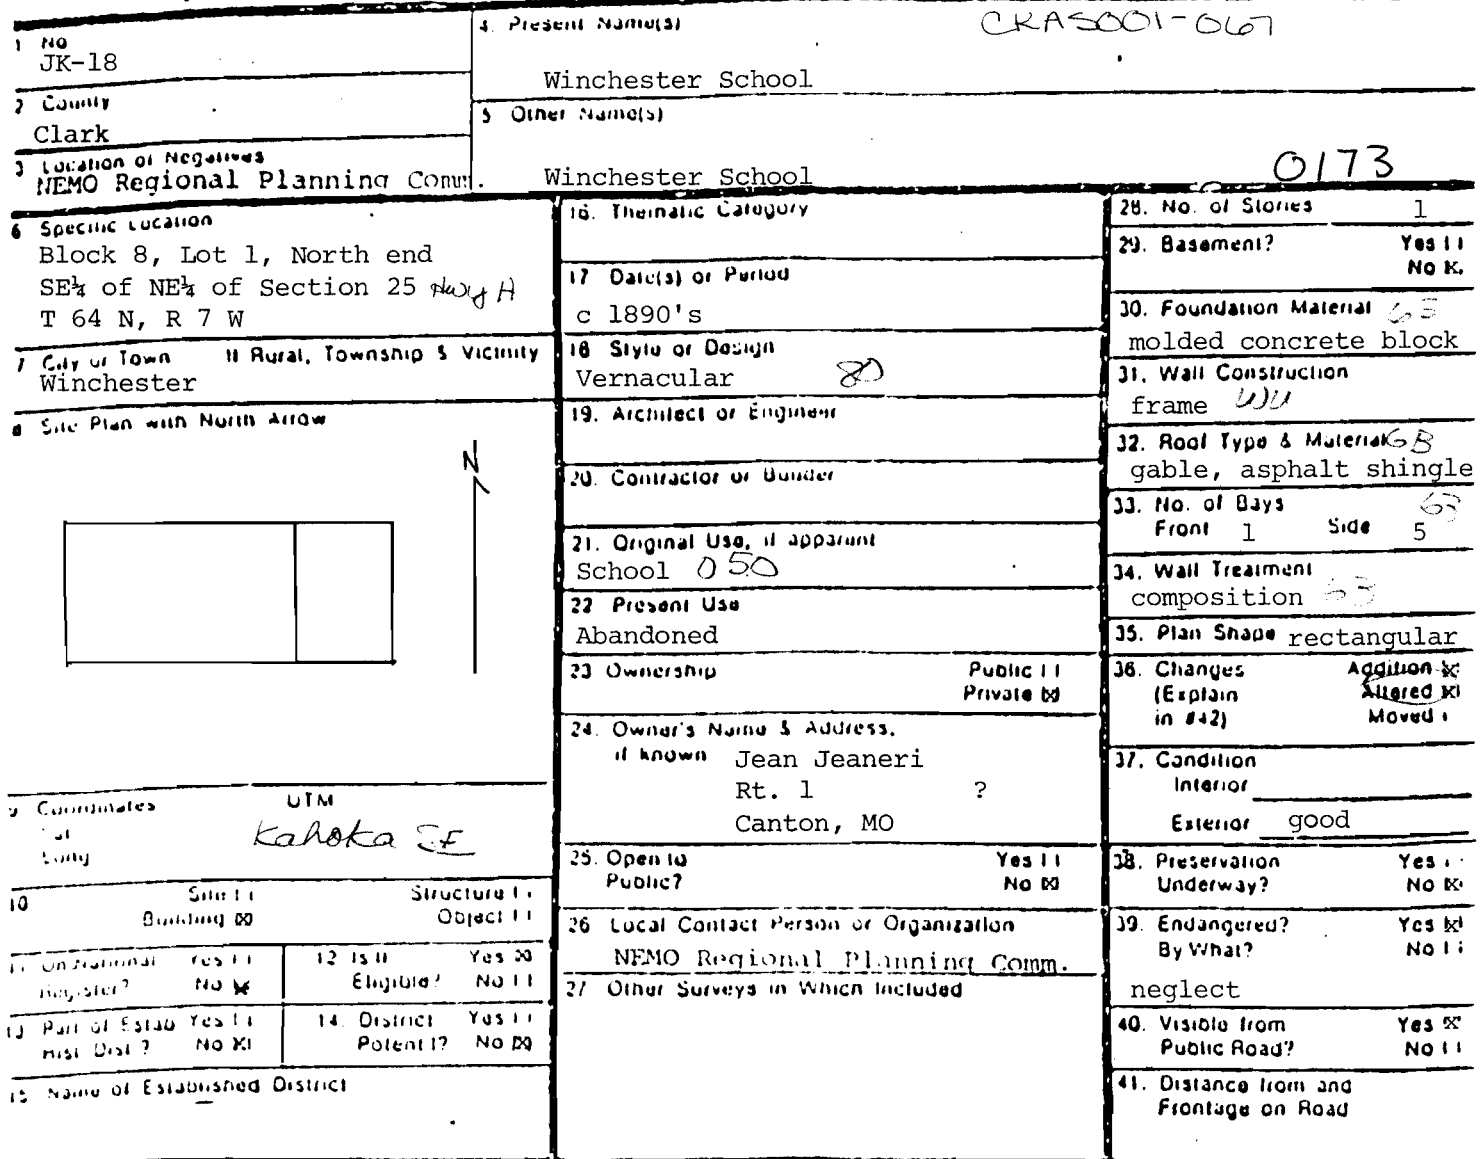 1 No
JK-18
4. Present Name(s)
CKAS001-067
Winchester School
2 County
Clark
5 Other Name(s)
Winchester School
0173
3 Location of Negatives
NEMO Regional Planning Comm.
6 Specific Location
Block 8, Lot 1, North end
SE¼ of NE¼ of Section 25 Hwy H
T 64 N, R 7 W
7 City or Town If Rural, Township & Vicinity
Winchester
8 Site Plan with North Arrow
N
9 Coordinates UTM
Lat
Long
Kahoka SE
10 Site [ ] Structure [ ]
Building [X] Object [ ]
11 On National Register? Yes [ ]
No [X]
12 Is It Eligible? Yes [X]
No [ ]
13 Part of Estab Hist Dist? Yes [ ]
No [X]
14. District Potent'l? Yes [ ]
No [X]
15 Name of Established District
16. Thematic Category
17 Date(s) or Period
c 1890's
18 Style or Design
Vernacular 80
19. Architect or Engineer
20. Contractor or Builder
21. Original Use, if apparent
School 050
22 Present Use
Abandoned
23 Ownership Public [ ]
Private [X]
24. Owner's Name & Address,
if known Jean Jeaneri
Rt. 1 ?
Canton, MO
25. Open to Yes [ ]
Public? No [X]
26 Local Contact Person or Organization
NEMO Regional Planning Comm.
27 Other Surveys in Which Included
28. No. of Stories 1
29. Basement? Yes [ ]
No [X]
30. Foundation Material 65
molded concrete block
31. Wall Construction
frame WU
32. Roof Type & Material GB
gable, asphalt shingle
33. No. of Bays 63
Front 1 Side 5
34. Wall Treatment
composition 63
35. Plan Shape rectangular
36. Changes Addition [X]
(Explain Altered [X]
in #42) Moved [ ]
37. Condition
Interior
Exterior good
38. Preservation Yes [ ]
Underway? No [X]
39. Endangered? Yes [X]
By What? No [ ]
neglect
40. Visible from Yes [X]
Public Road? No [ ]
41. Distance from and
Frontage on Road